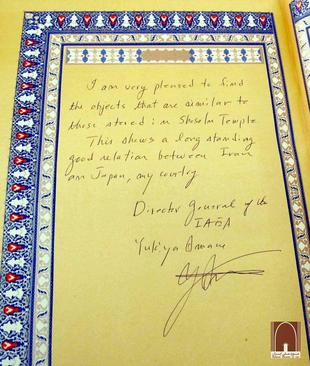 I am very pleased to find
the objects that are similar to
those stored in Temple
This shows a long standing
good relation between Iran
an Japan, my country
Director General of the
IAEA
Yukiya Amano